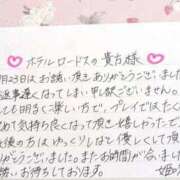 ホテルロードスの貴方様
月23日はお誘い頂きありがとうございまし
返事遅くなってしまい申し訳ございません。
ても明るく楽しい方で、プレイではたく
めて気持ち良くなって頂き嬉しかったで
後の方はゆっくりしなど優しくして頂
ございました。またお時間が合いまし
お待ちしております。